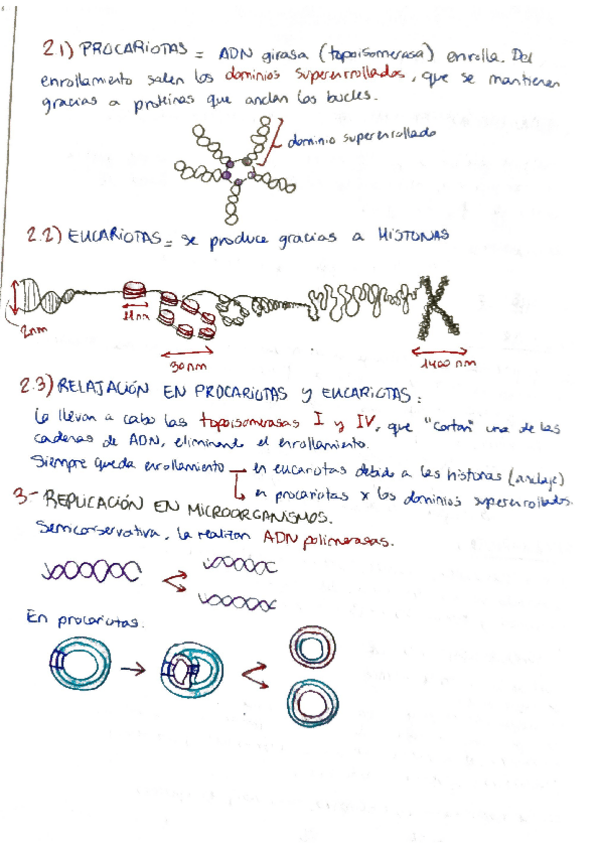 2.1) PROCARIOTAS = ADN girasa (topoisomerasa) enrolla. Del
enrollamiento salen los dominios superenrollados, que se mantienen
gracias a proteinas que anclan los bucles.
dominio superenrollado
2.2) EUCARIOTAS = se produce gracias a HISTONAS
2nm
11nm
30nm
1400 nm
2.3) RELAJACIÓN EN PROCARIOTAS y EUCARIOTAS:
La llevan a cabo las topoisomerasas I y IV, que "cortan" una de las
cadenas de ADN, eliminando el enrollamiento.
Siempre queda enrollamiento en eucariotas debido a las histonas (anclaje)
en procariotas x los dominios superenrollados.
3- REPLICACIÓN EN MICROORGANISMOS.
Semiconservativa, la realizan ADN polimerasas.
En procariotas.